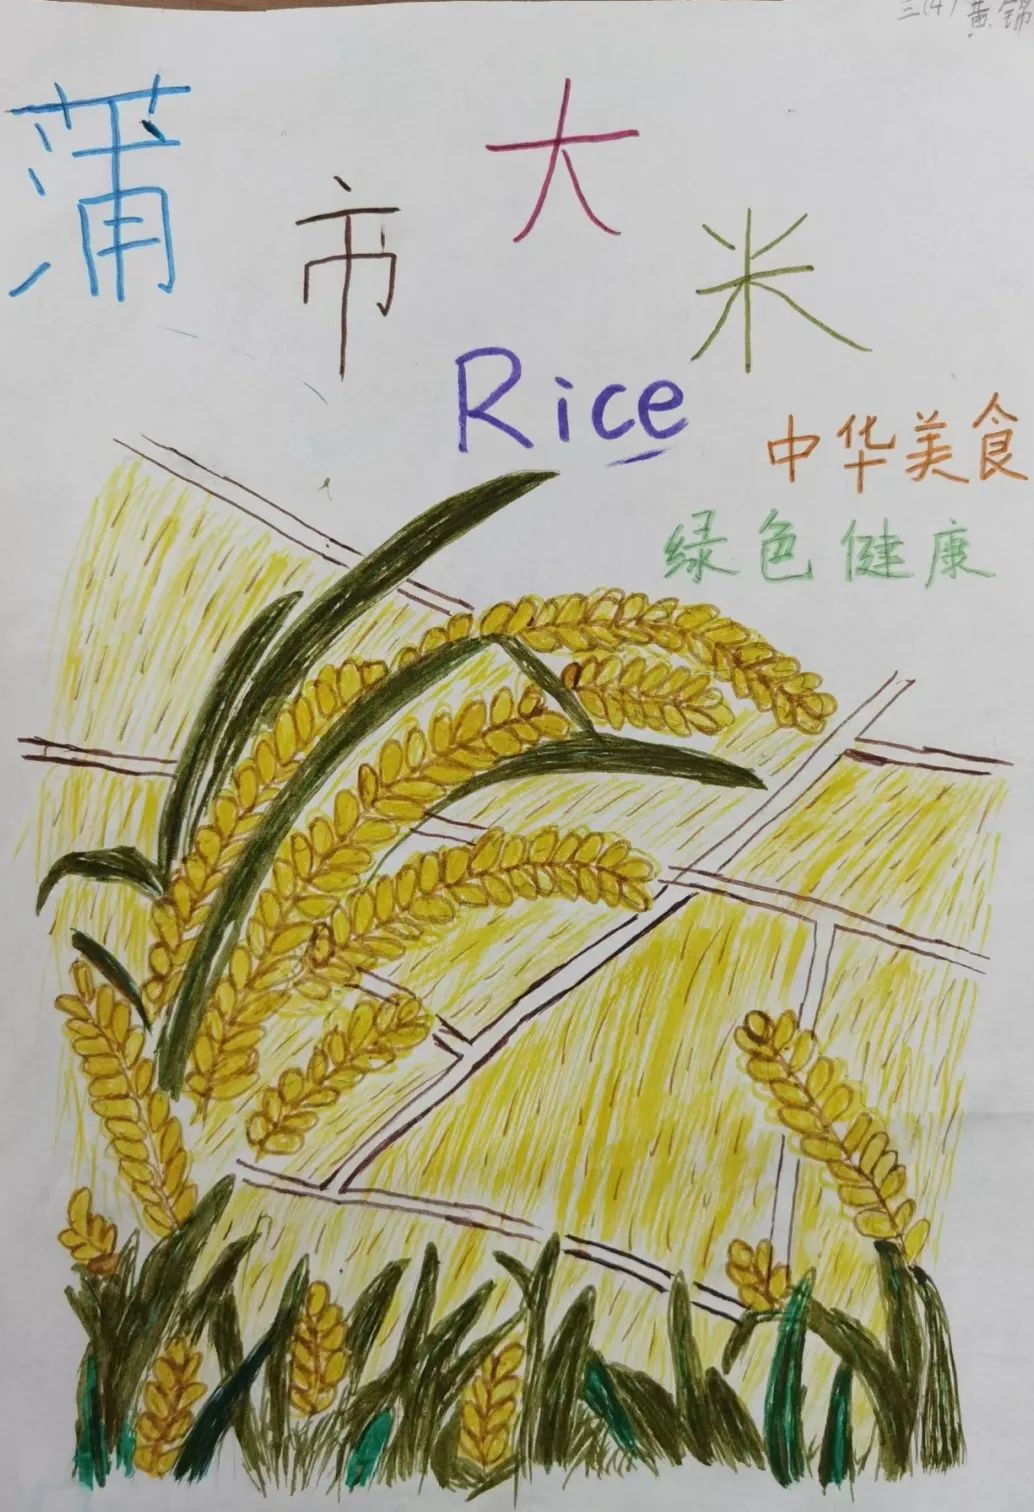 三(4) 黄锦
蒲市大米
Rice
中华美食
绿色健康